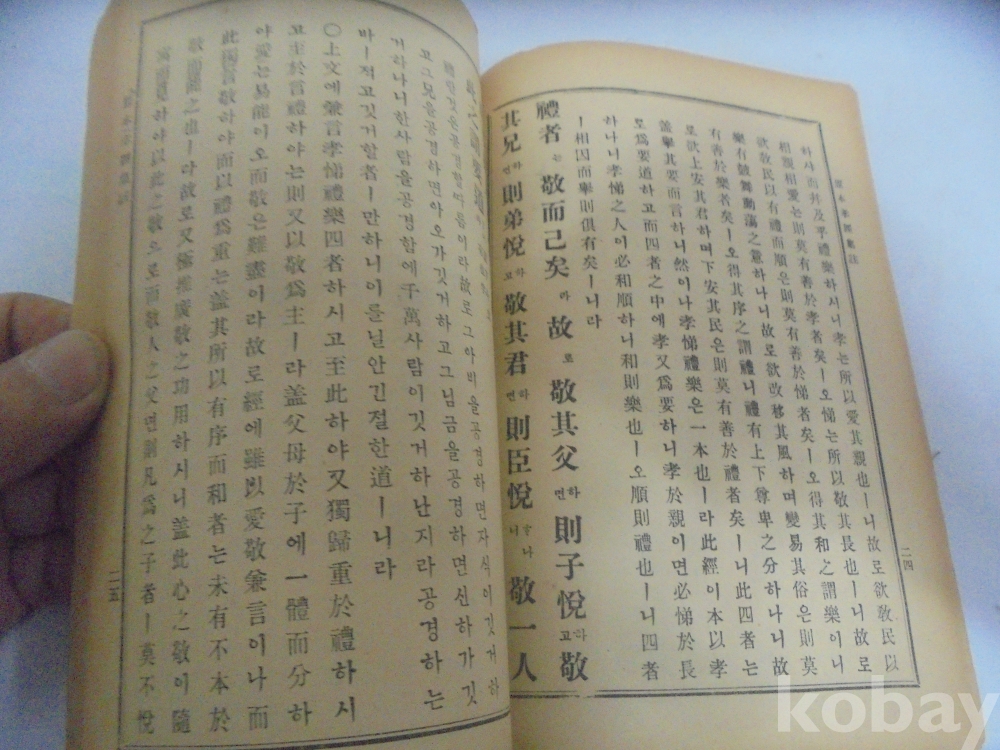 原本孝經集註
二四
하사而幷及乎禮樂하시니孝는所以愛其親也ㅣ니故로欲敎民以
相親相愛는則莫有善於孝者矣ㅣ오悌는所以敬其長也ㅣ니故로
欲敎民以有禮而順은則莫有善於悌者矣ㅣ오得其和之謂樂이니
樂有鼓舞動蕩之意하나니故로欲改移其風하며變易其俗은則莫
有善於樂者矣ㅣ오得其序之謂禮니禮有上下尊卑之分하나니故
로欲上安其君하며下安其民은則莫有善於禮者矣ㅣ니此四者는
蓋擧其要而言하니然이나孝悌禮樂은一本也ㅣ라此經이本以孝
로爲要道하고而四者之中에孝又爲要하니孝於親이면必悌於長
하나니孝悌之人이必和順하니和則樂也ㅣ오順則禮也ㅣ니四者
ㅣ相因而擧則俱有矣ㅣ니라
禮者는敬而已矣라故로敬其父하면則子悅하고敬
其兄하면則弟悅하고敬其君하면則臣悅하나니敬一人
禮란것은공경할따름이라故로그아비을공경하면자식이깃거하
고그兄을공경하면아오가깃거하고그님금을공경하면신하가깃
거하나니한사람을공경함에千萬사람이깃거하난지라공경하는
바ㅣ적고깃거할者ㅣ만하니이를닐안긴절한道ㅣ니라
○上文에兼言孝悌禮樂四者하시고至此하야又獨歸重於禮하시
고主於言禮하야는則又以敬爲主ㅣ라盖父母於子에一體而分하
야愛는易能이오而敬은難盡이라故로經에雖以愛敬兼言이나而
此獨言敬하야而以禮爲重은盖其所以有序而和者는未有不本於
敬而能之也ㅣ라故로又極推廣敬之功用하시니盖此心之敬이隨
寓而見하야以此之敬으로而敬人之父면則凡爲之子者ㅣ莫不悅
二五